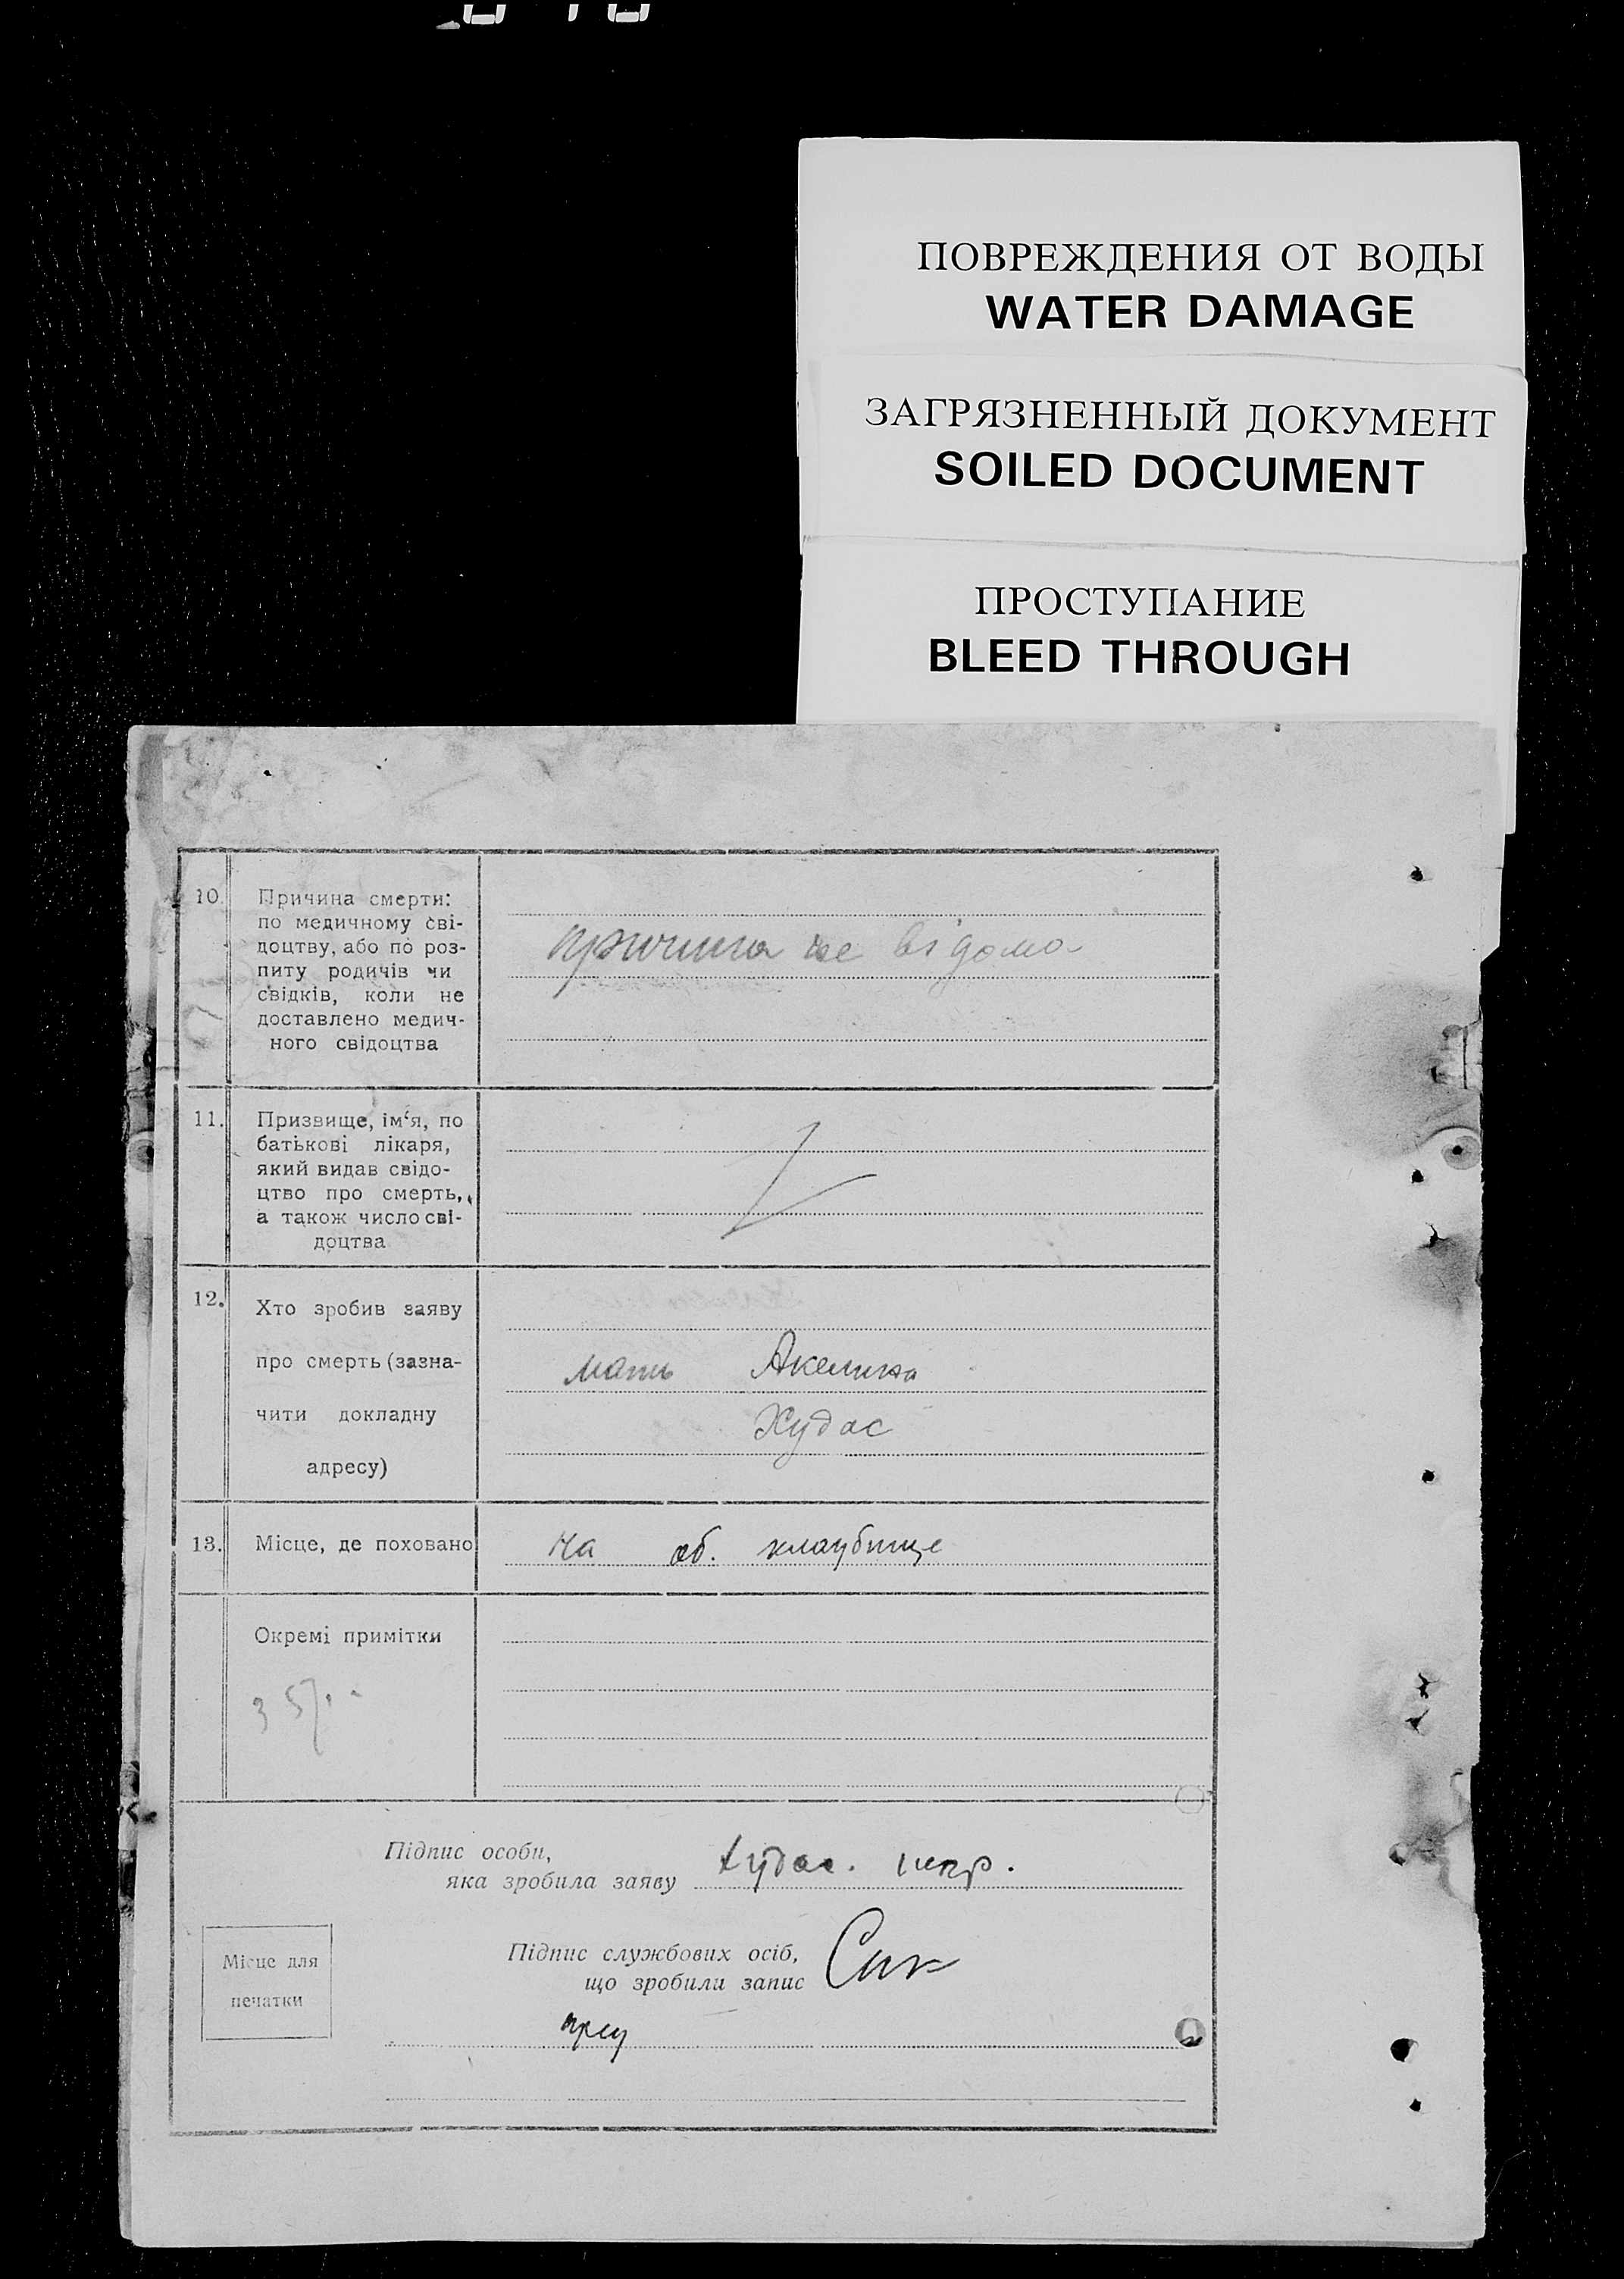 ПОВРЕЖДЕНИЯ ОТ ВОДЫ
WATER DAMAGE
ЗАГРЯЗНЕННЫЙ ДОКУМЕНТ
SOILED DOCUMENT
ПРОСТУПАНИЕ
BLEED THROUGH
10.
Причина смерти:
по медичному сві-
доцтву, або по роз-
питу родичів чи
свідків, коли не
доставлено медич-
ного свідоцтва
причина не відома
11.
Призвище, ім‘я, по
батькові лікаря,
який видав свідо-
цтво про смерть,
а також число сві-
доцтва
12.
Хто зробив заяву
про смерть (зазна-
чити докладну
адресу)
мати Акелина
Худас
13.
Місце, де поховано
на об. кладбище
Окремі примітки
Підпис особи,
яка зробила заяву
Худас.
Підпис службових осіб,
що зробили запис
Місце для
печатки